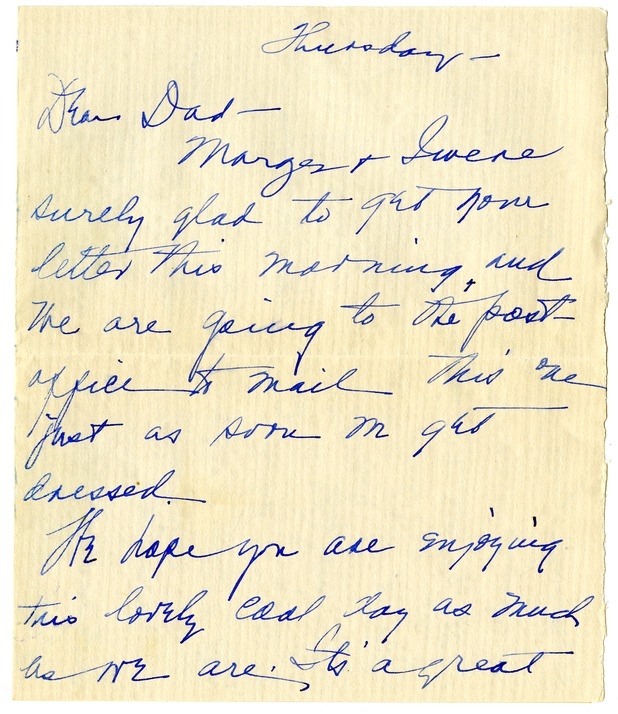 Thursday —
Dear Dad —
Marges + I were
surely glad to get your
letter this morning, and
we are going to the post-
office to mail this one
just as soon as I'm get
dressed.
We hope you are enjoying
this lovely cool day as much
as we are. It's a great